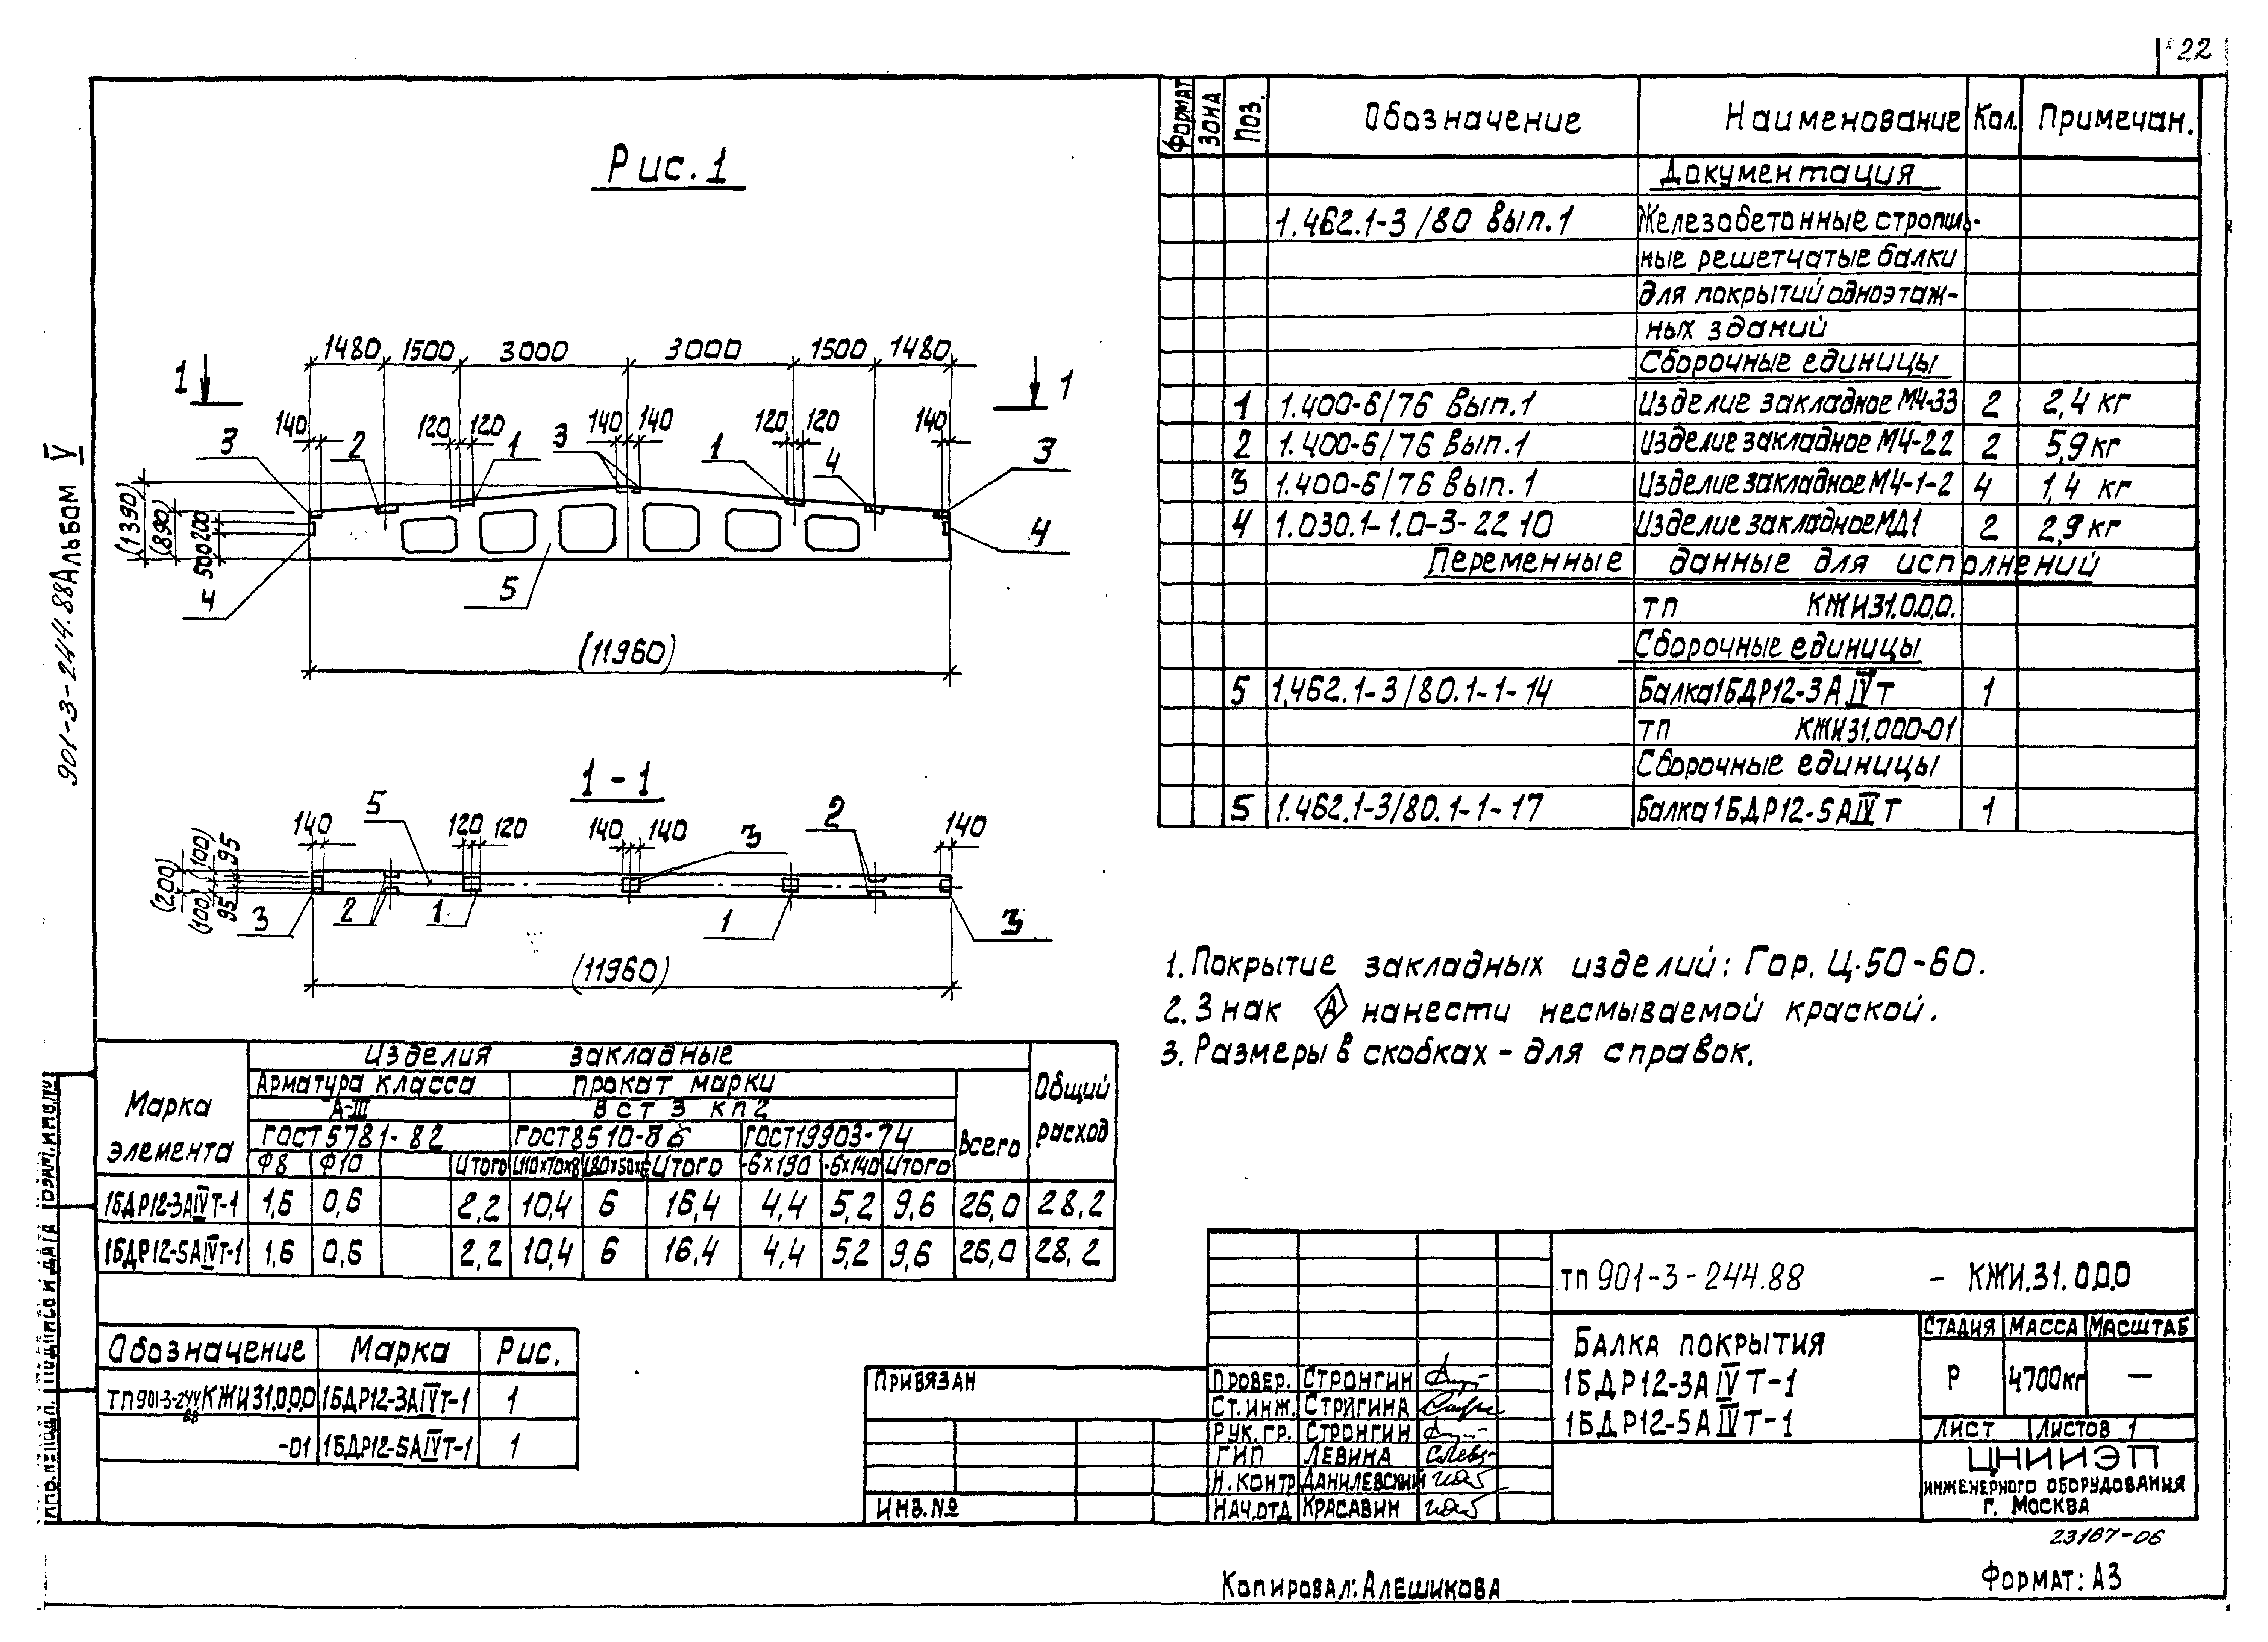 22
901-3-244.88 Альбом V
Рис. 1
1480 1500 3000 3000 1500 1480
1 1
140 120 120 140 140 120 120 140
3 2 1 3 1 4 3
(1390) (890) 200 500
4 5 4
(11960)
1-1
140 5 120 120 140 140 3 2 140
(200) (100) (100) 95 95
3 2 1 1 3
(11960)
Формат Зона Поз. Обозначение Наименование Кол. Примечан.
Документация
1.462.1-3/80 Вып.1 Железобетонные стропиль-
ные решетчатые балки
для покрытий одноэтаж-
ных зданий
Сборочные единицы
1 1.400-6/76 Вып.1 Изделие закладное М4-33 2 2,4 кг
2 1.400-6/76 Вып.1 Изделие закладное М4-22 2 5,9 кг
3 1.400-6/76 Вып.1 Изделие закладное М4-1-2 4 1,4 кг
4 1.030.1-1.0-3-22 10 Изделие закладное МД1 2 2,9 кг
Переменные данные для исполнений
ТП КЖИ31.0.0.0.
Сборочные единицы
5 1.462.1-3/80.1-1-14 Балка 1БДР12-3АIVТ 1
ТП КЖИ31.000-01
Сборочные единицы
5 1.462.1-3/80.1-1-17 Балка 1БДР12-5АIVТ 1
1. Покрытие закладных изделий: Гор. Ц.50-60.
2. Знак А нанести несмываемой краской.
3. Размеры в скобках - для справок.
Марка элемента Изделия закладные Общий расход
Арматура класса Прокат марки Всего
А-III ВСт3кп2
ГОСТ 5781-82 ГОСТ 8510-86 ГОСТ 19903-74
Ф8 Ф10 Итого L110х70х8 L80х50х6 Итого -6х190 -6х140 Итого
1БДР12-3АIVТ-1 1,6 0,6 2,2 10,4 6 16,4 4,4 5,2 9,6 26,0 28,2
1БДР12-5АIVТ-1 1.6 0.6 2,2 10,4 6 16,4 4,4 5,2 9,6 26,0 28,2
Обозначение Марка Рис.
ТП901-3-244.88 КЖИ31.0.0.0 1БДР12-3АIVТ-1 1
-01 1БДР12-5АIVТ-1 1
Привязан
Инв.№
Провер. Стронгин
Ст.инж. Стригина
Рук.гр. Стронгин
ГИП Левина
Н.контр Данилевский
Нач.отд Красавин
ТП 901-3-244.88 - КЖИ.31.0.0.0
Балка покрытия
1БДР12-3АIVТ-1
1БДР12-5АIVТ-1
Стадия Масса Масштаб
Р 4700кг —
Лист Листов 1
ЦНИИЭП
инженерного оборудования
г. Москва
23167-06
Копировал: Алешикова
Формат: А3